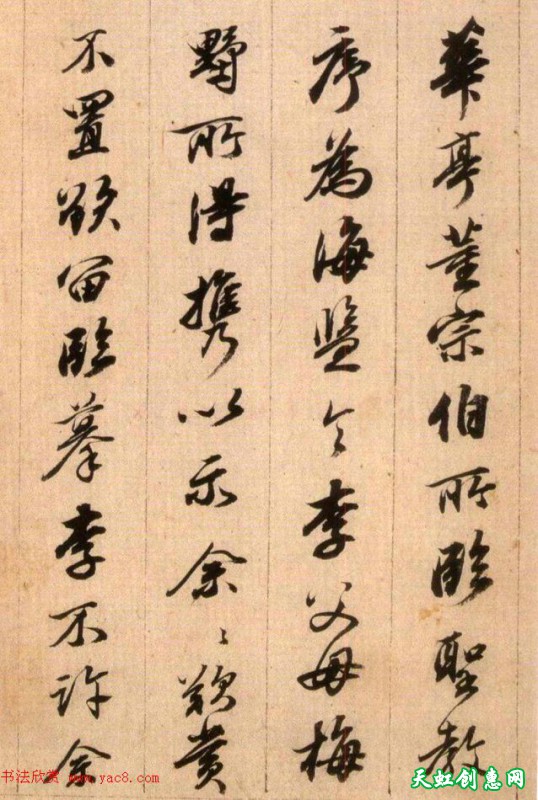 華亭董宗伯所臨聖教
序為海盐令李父母梅
墅所得携以示余〻歎赏
不置欲留臨摹李不許余
书法欣赏 www.yac8.com
天虹创惠网